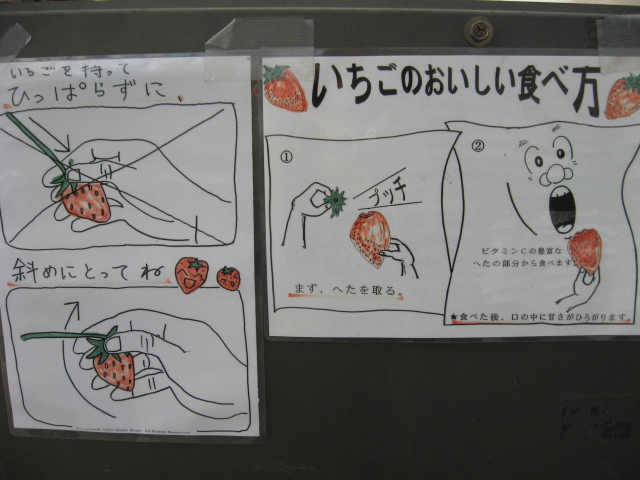 いちごを持って
ひっぱらずに、
斜めにとってね
いちごのおいしい食べ方
①
プッチ
まず、へたを取る。
②
ビタミンCの豊富な
へたの部分から食べます。
★食べた後、口の中に甘さがひろがります。